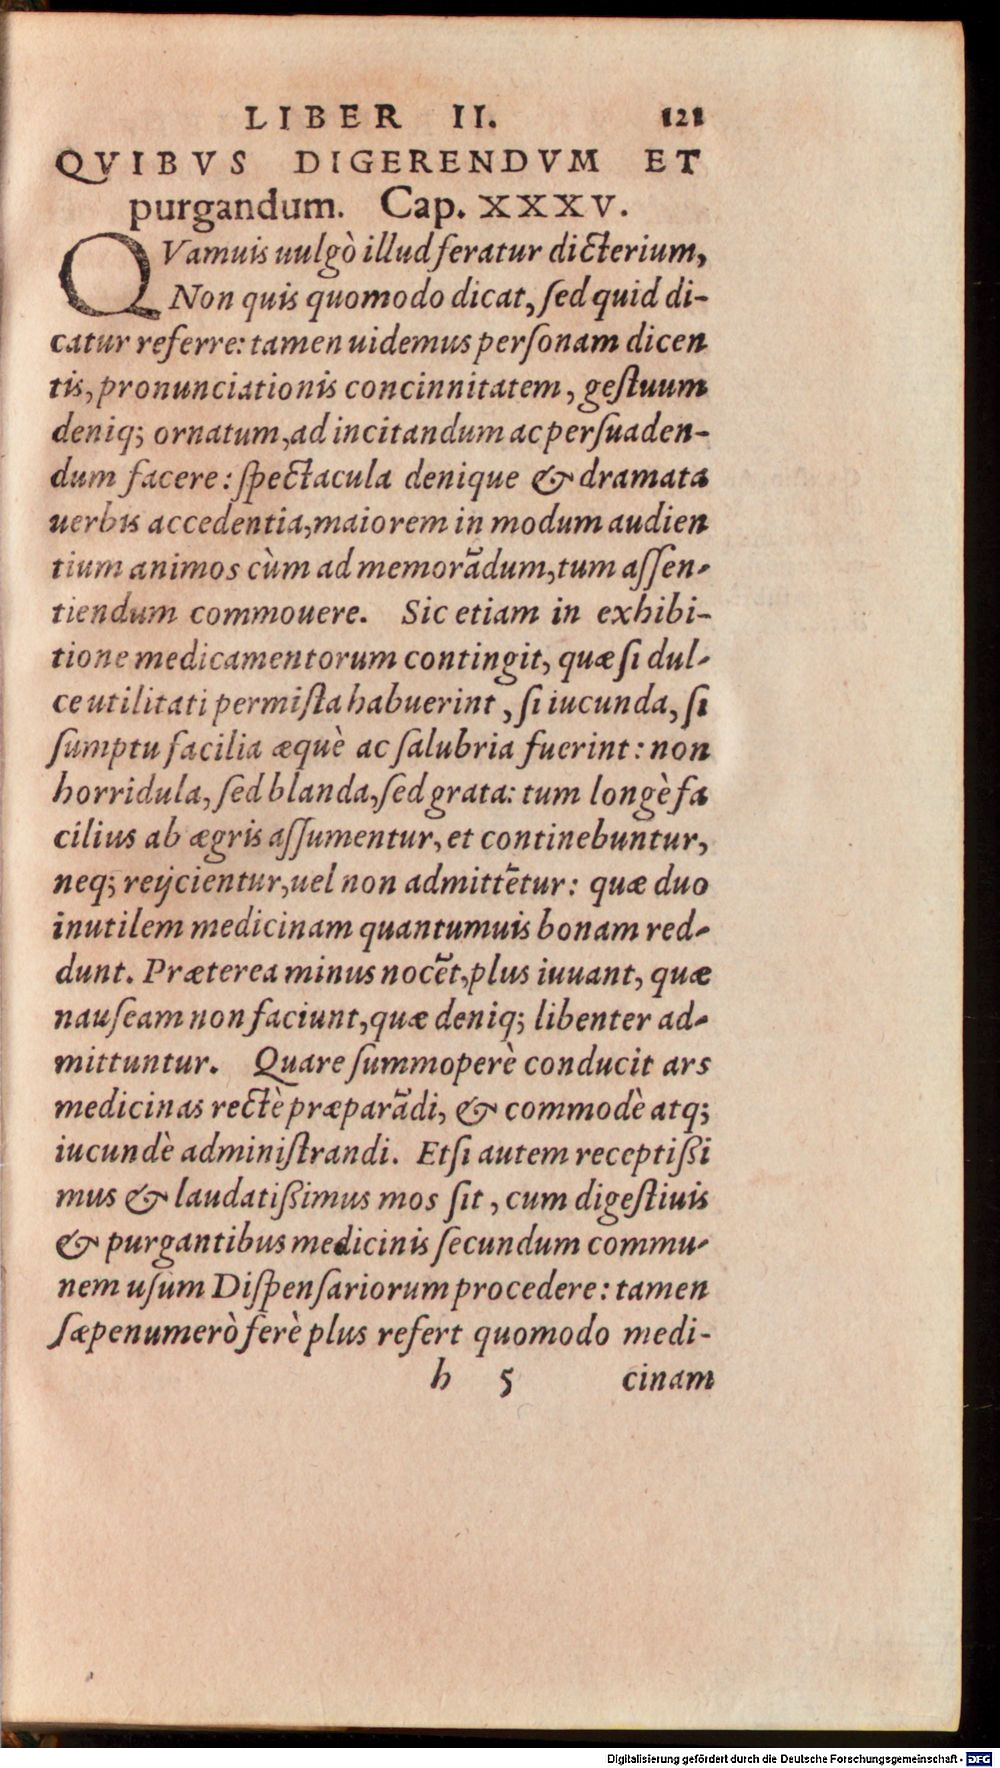 LIBER II. 121
QVIBVS DIGERENDVM ET
purgandum. Cap. XXXV.
QVamuis uulgò illud feratur dicterium,
Non quis quomodo dicat, sed quid di-
catur referre: tamen uidemus personam dicen
tis, pronunciationis concinnitatem, gestuum
deniq; ornatum, ad incitandum ac persuaden-
dum facere: spectacula denique & dramata
uerbis accedentia, maiorem in modum audien
tium animos cùm ad memorãdum, tum assen-
tiendum commouere. Sic etiam in exhibi-
tione medicamentorum contingit, quæ si dul-
ce utilitati permista habuerint, si iucunda, si
sumptu facilia æquè ac salubria fuerint: non
horridula, sed blanda, sed grata: tum longè fa
cilius ab ægris assumentur, et continebuntur,
neq; reijcientur, uel non admittẽtur: quæ duo
inutilem medicinam quantumuis bonam red-
dunt. Præterea minus nocẽt, plus iuuant, quæ
nauseam non faciunt, quæ deniq; libenter ad-
mittuntur. Quare summoperè conducit ars
medicinas rectè præparãdi, & commodè atq;
iucundè administrandi. Etsi autem receptißi
mus & laudatißimus mos sit, cum digestiuis
& purgantibus medicinis secundum commu-
nem usum Dispensariorum procedere: tamen
sæpenumerò ferè plus refert quomodo medi-
h 5 cinam
Digitalisierung gefördert durch die Deutsche Forschungsgemeinschaft - DFG